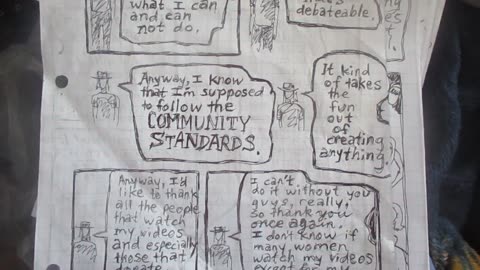 what I can
and can
not do.
debateable.
Anyway, I know
that I'm supposed
to follow the
COMMUNITY
STANDARDS.
It kind
of takes
the
fun
out
of
creating
anything.
Anyway, I'd
like to thank
all the people
that watch
my videos
and especially
those that
I can't
do it without you
guys, really,
so thank you
once again.
I don't know if
many women
watch my videos
except for my